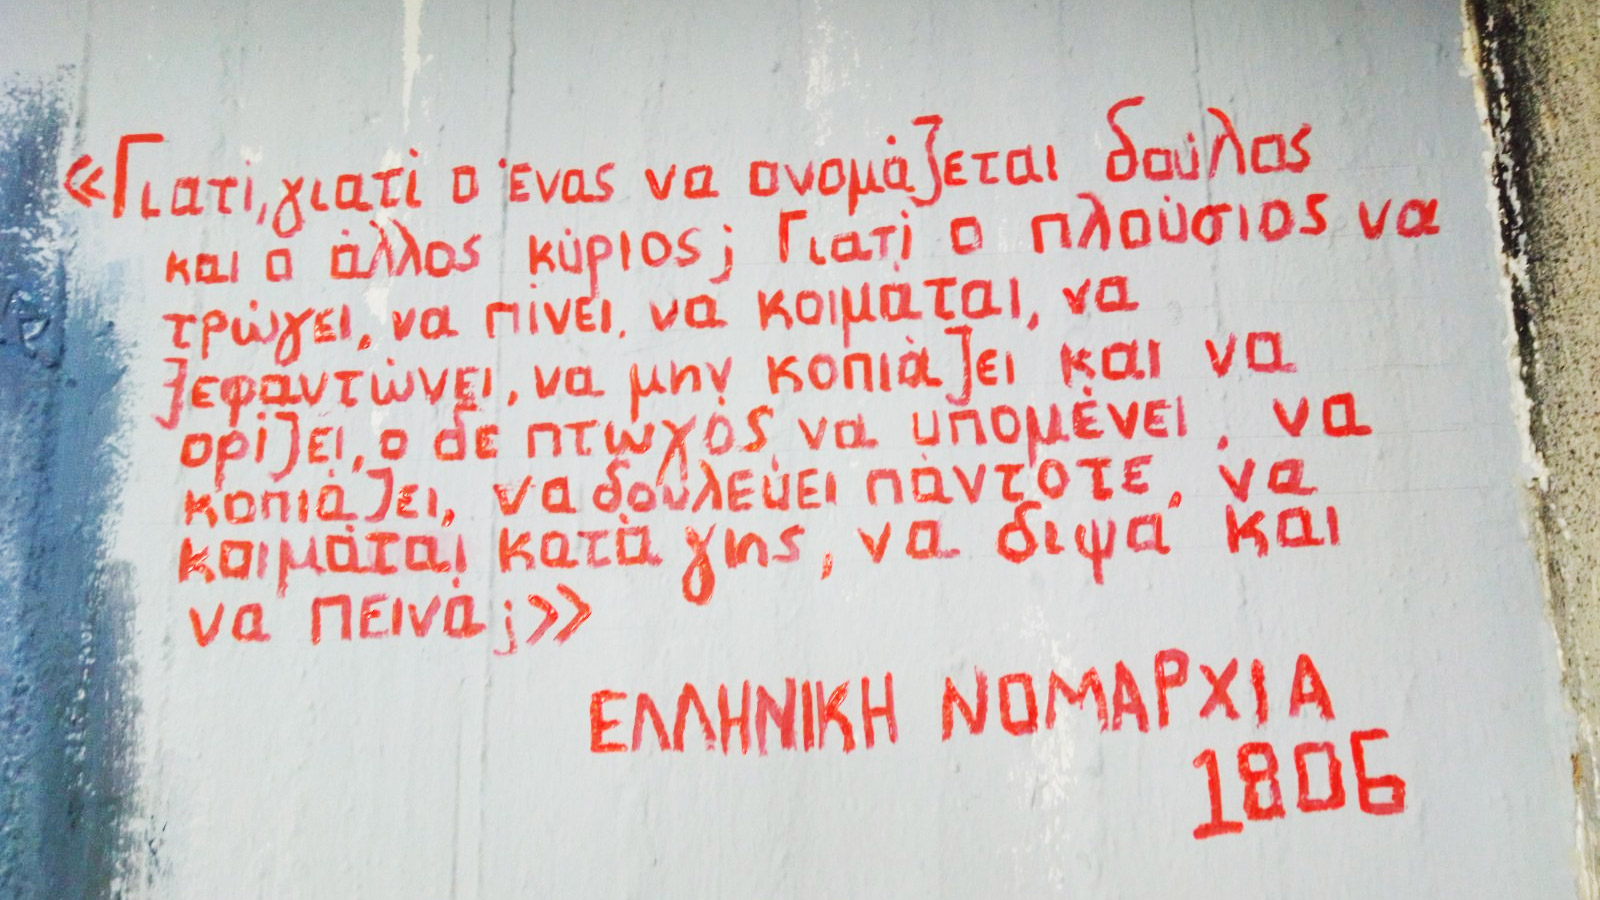 «Γιατί, γιατί ο ένας να ονομάζεται δούλος
και ο άλλος κύριος; Γιατί ο πλούσιος να
τρώγει, να πίνει, να κοιμάται, να
ξεφαντώνει, να μην κοπιάζει και να
ορίζει, ο δε πτωχός να υπομένει, να
κοπιάζει, να δουλεύει πάντοτε, να
κοιμάται κατά γης, να διψά και
να πεινά;»
ΕΛΛΗΝΙΚΗ ΝΟΜΑΡΧΙΑ
1806